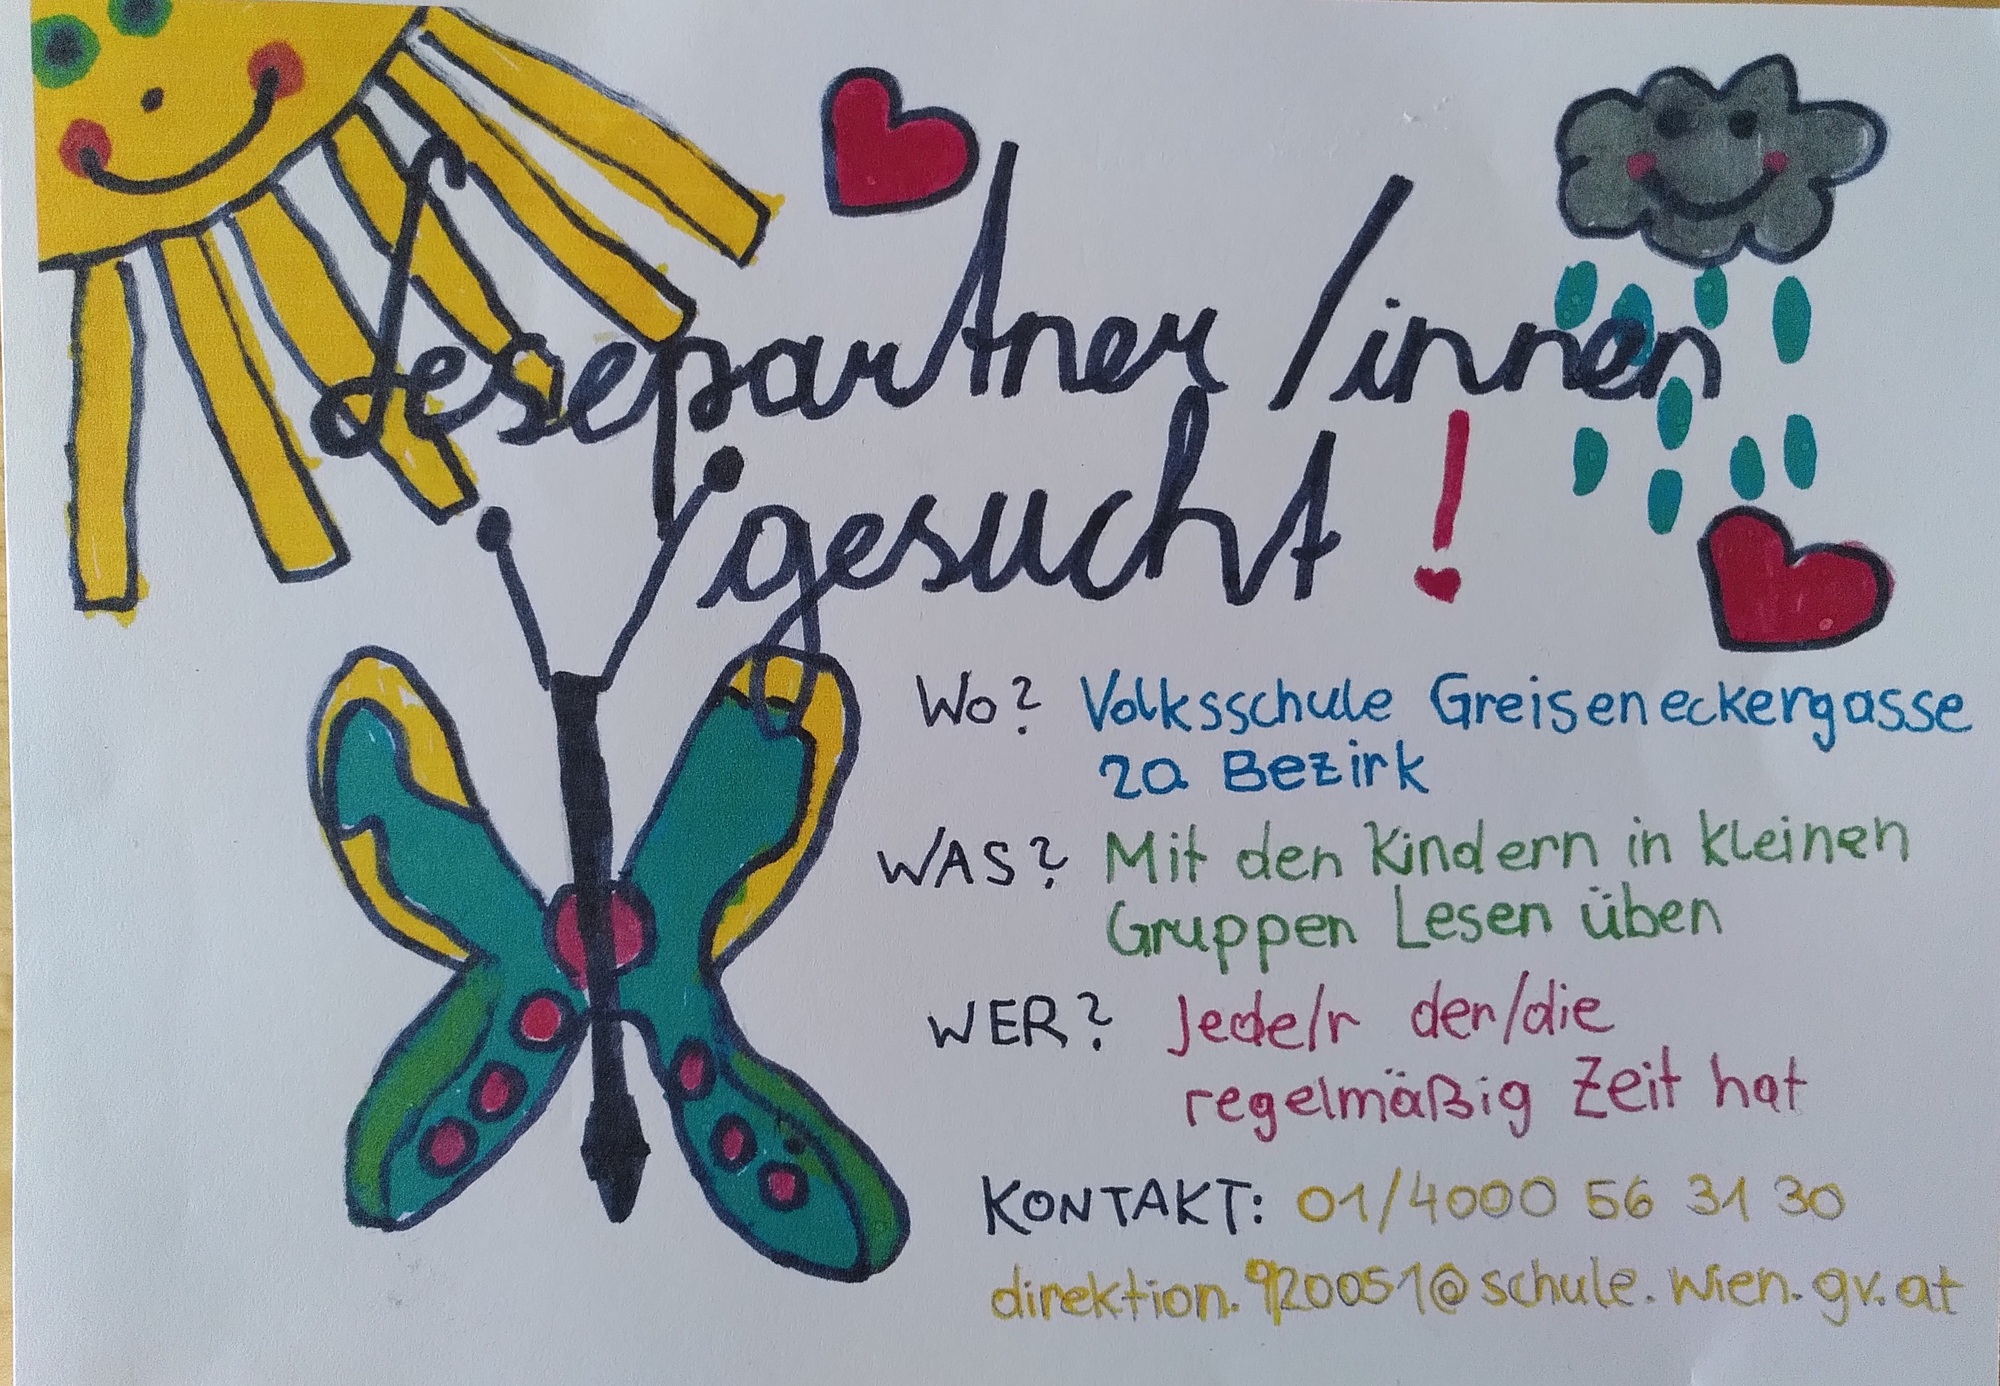 Lesepartner/innen
gesucht!
Wo? Volksschule Greiseneckergasse
20. Bezirk
WAS? Mit den Kindern in kleinen
Gruppen Lesen üben
WER? Jede/r der/die
regelmäßig Zeit hat
KONTAKT: 01/4000 56 31 30
direktion.920051@schule.wien.gv.at